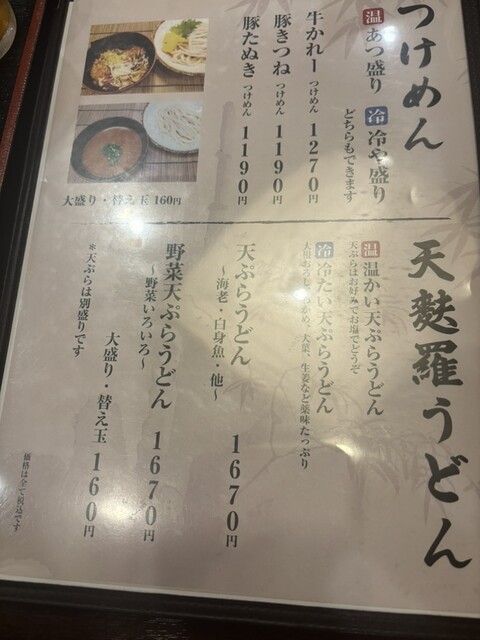 つけめん
温 あつ盛り 冷 冷や盛り
どちらもできます
牛かれー つけめん 1270円
豚きつね つけめん 1190円
豚たぬき つけめん 1190円
大盛り・替え玉 160円
天麩羅うどん
温 温かい天ぷらうどん
天ぷらはお好みでお塩でどうぞ
冷 冷たい天ぷらうどん
大根おろし、わかめ、大葉、生姜など薬味たっぷり
天ぷらうどん 1670円
〜海老・白身魚・他〜
野菜天ぷらうどん 1670円
〜野菜いろいろ〜
大盛り・替え玉 160円
*天ぷらは別盛りです
価格は全て税込です